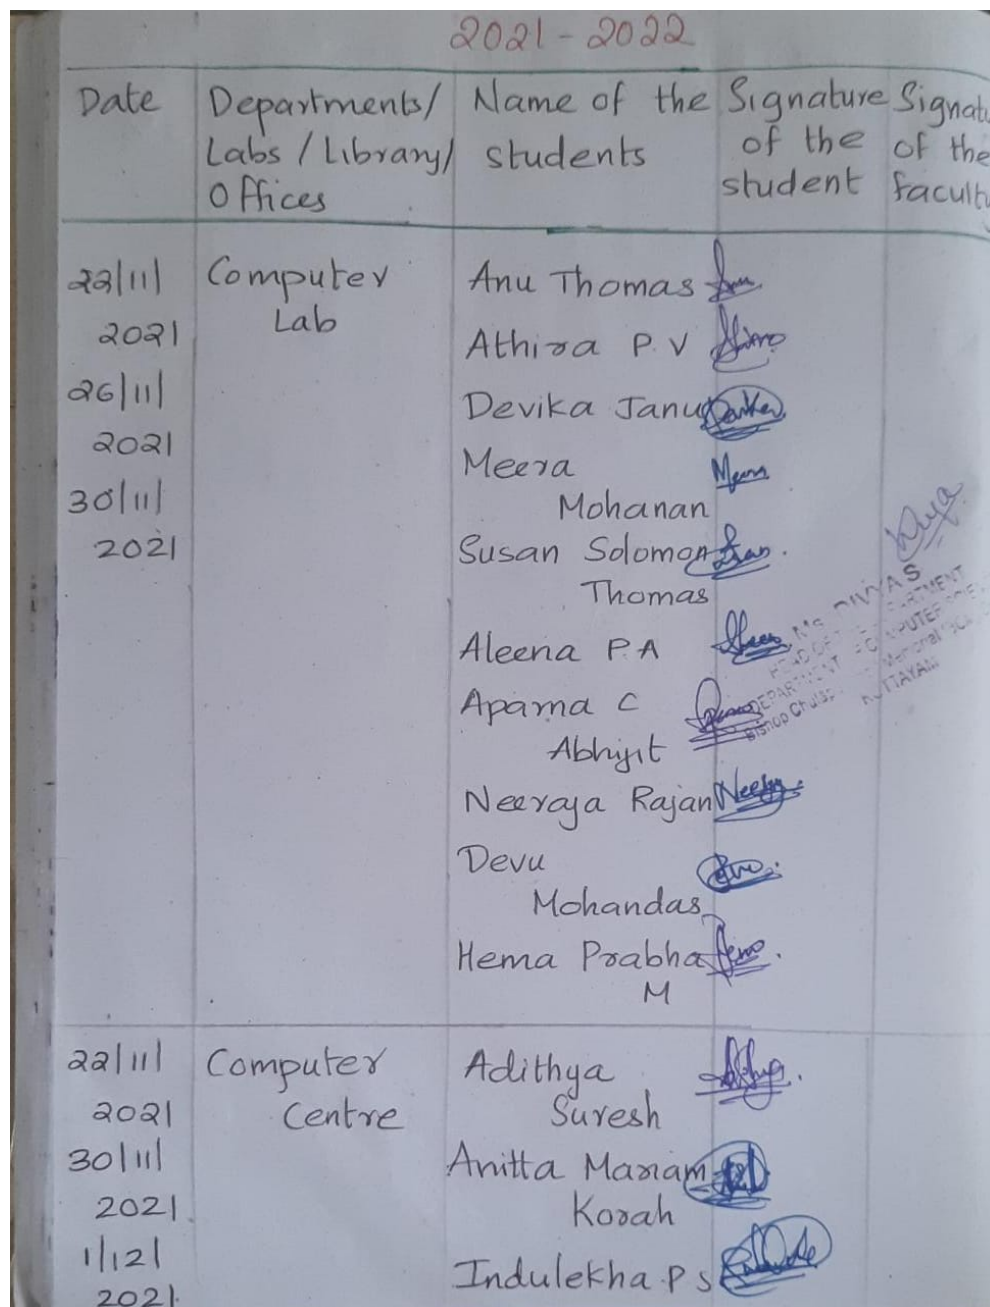 2021 - 2022
Date
Departments/
Labs / Library/
Offices
Name of the
students
Signature
of the
student
Signatu
of the
facult
22/11/
2021
26/11/
2021
30/11/
2021
Computer
Lab
Anu Thomas
Athira P. V
Devika Janu
Meera
Mohanan
Susan Solomon
Thomas
Aleena P A
Aparna C
Abhijit
Neeraja Rajan
Devu
Mohandas
Hema Prabha
M
Ms. DIVYA S
HEAD OF THE DEPARTMENT
DEPARTMENT OF COMPUTER
Bishop Memorial
KOTTAYAM
22/11/
2021
30/11/
2021
1/12/
2021
Computer
Centre
Adithya
Suresh
Anitta Mariam
Korah
Indulekha P S